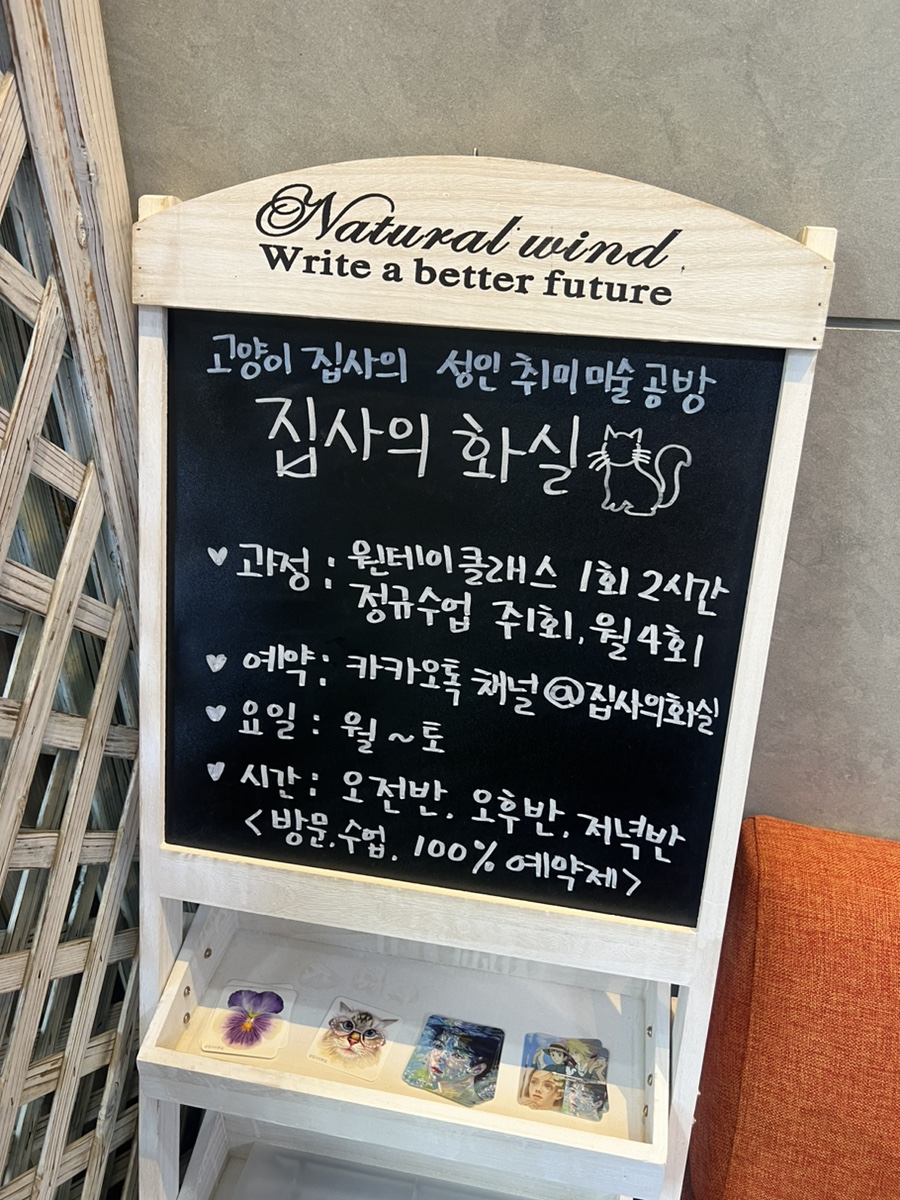 Natural wind
Write a better future
고양이 집사의 성인 취미 미술 공방
집사의 화실
♥ 과정 : 원데이 클래스 1회 2시간
정규수업 주1회, 월4회
♥ 예약 : 카카오톡 채널 @집사의화실
♥ 요일 : 월 ~ 토
♥ 시간 : 오전반, 오후반, 저녁반
<방문, 수업, 100% 예약제>